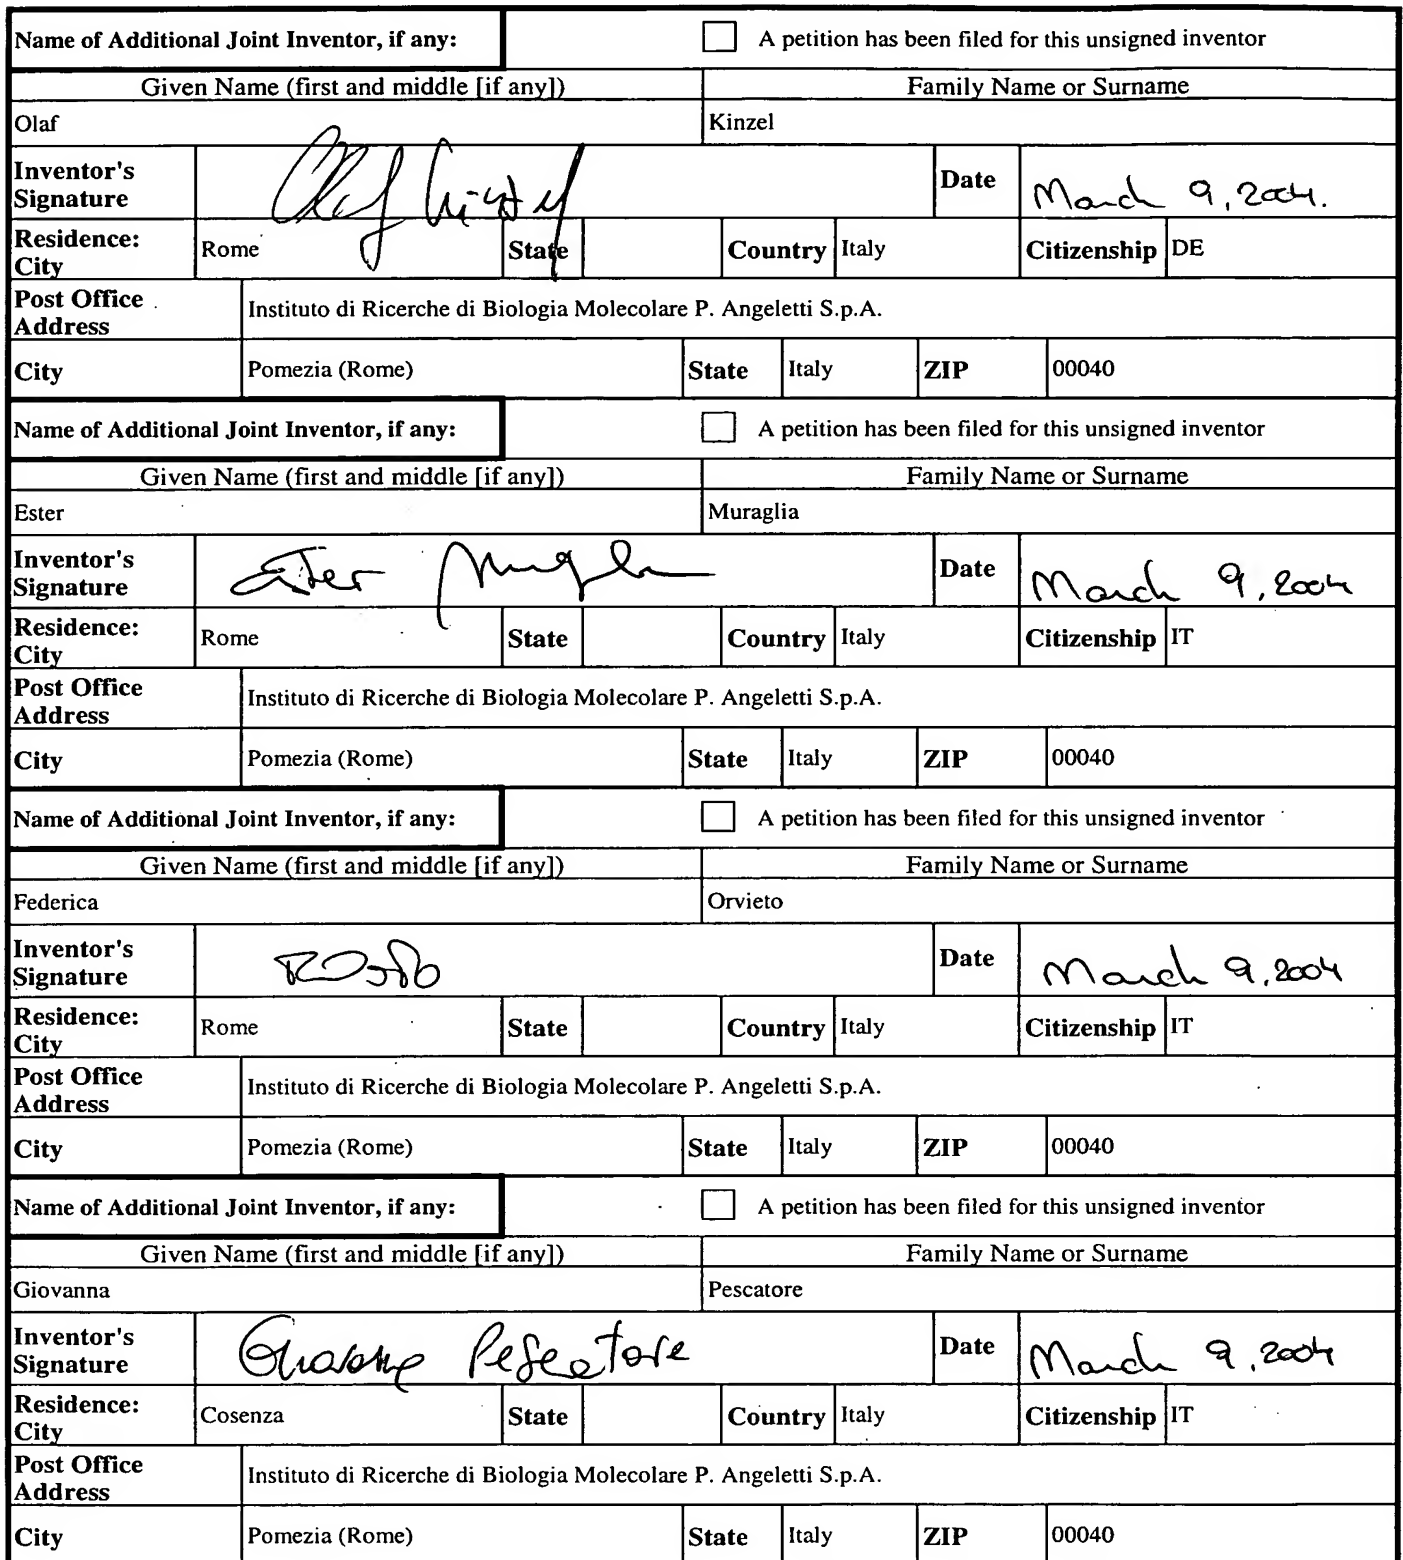 Name of Additional Joint Inventor, if any: A petition has been filed for this unsigned inventor
Given Name (first and middle [if any]) Family Name or Surname
Olaf Kinzel
Inventor's Signature Olaf Kinzel Date March 9, 2004.
Residence: City Rome State Country Italy Citizenship DE
Post Office Address Instituto di Ricerche di Biologia Molecolare P. Angeletti S.p.A.
City Pomezia (Rome) State Italy ZIP 00040
Name of Additional Joint Inventor, if any: A petition has been filed for this unsigned inventor
Given Name (first and middle [if any]) Family Name or Surname
Ester Muraglia
Inventor's Signature Ester Muraglia Date March 9, 2004
Residence: City Rome State Country Italy Citizenship IT
Post Office Address Instituto di Ricerche di Biologia Molecolare P. Angeletti S.p.A.
City Pomezia (Rome) State Italy ZIP 00040
Name of Additional Joint Inventor, if any: A petition has been filed for this unsigned inventor
Given Name (first and middle [if any]) Family Name or Surname
Federica Orvieto
Inventor's Signature Date March 9, 2004
Residence: City Rome State Country Italy Citizenship IT
Post Office Address Instituto di Ricerche di Biologia Molecolare P. Angeletti S.p.A.
City Pomezia (Rome) State Italy ZIP 00040
Name of Additional Joint Inventor, if any: A petition has been filed for this unsigned inventor
Given Name (first and middle [if any]) Family Name or Surname
Giovanna Pescatore
Inventor's Signature Giovanna Pescatore Date March 9, 2004
Residence: City Cosenza State Country Italy Citizenship IT
Post Office Address Instituto di Ricerche di Biologia Molecolare P. Angeletti S.p.A.
City Pomezia (Rome) State Italy ZIP 00040